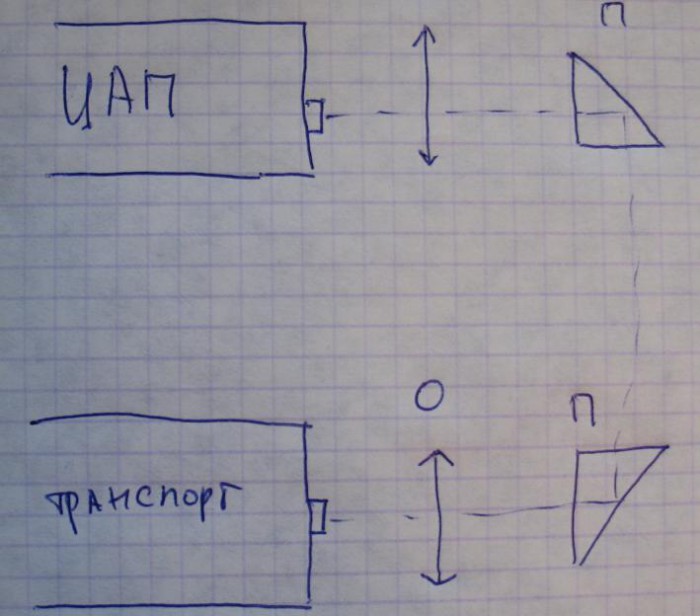 П
ЦАП
О
П
ТРАНСПОРТ